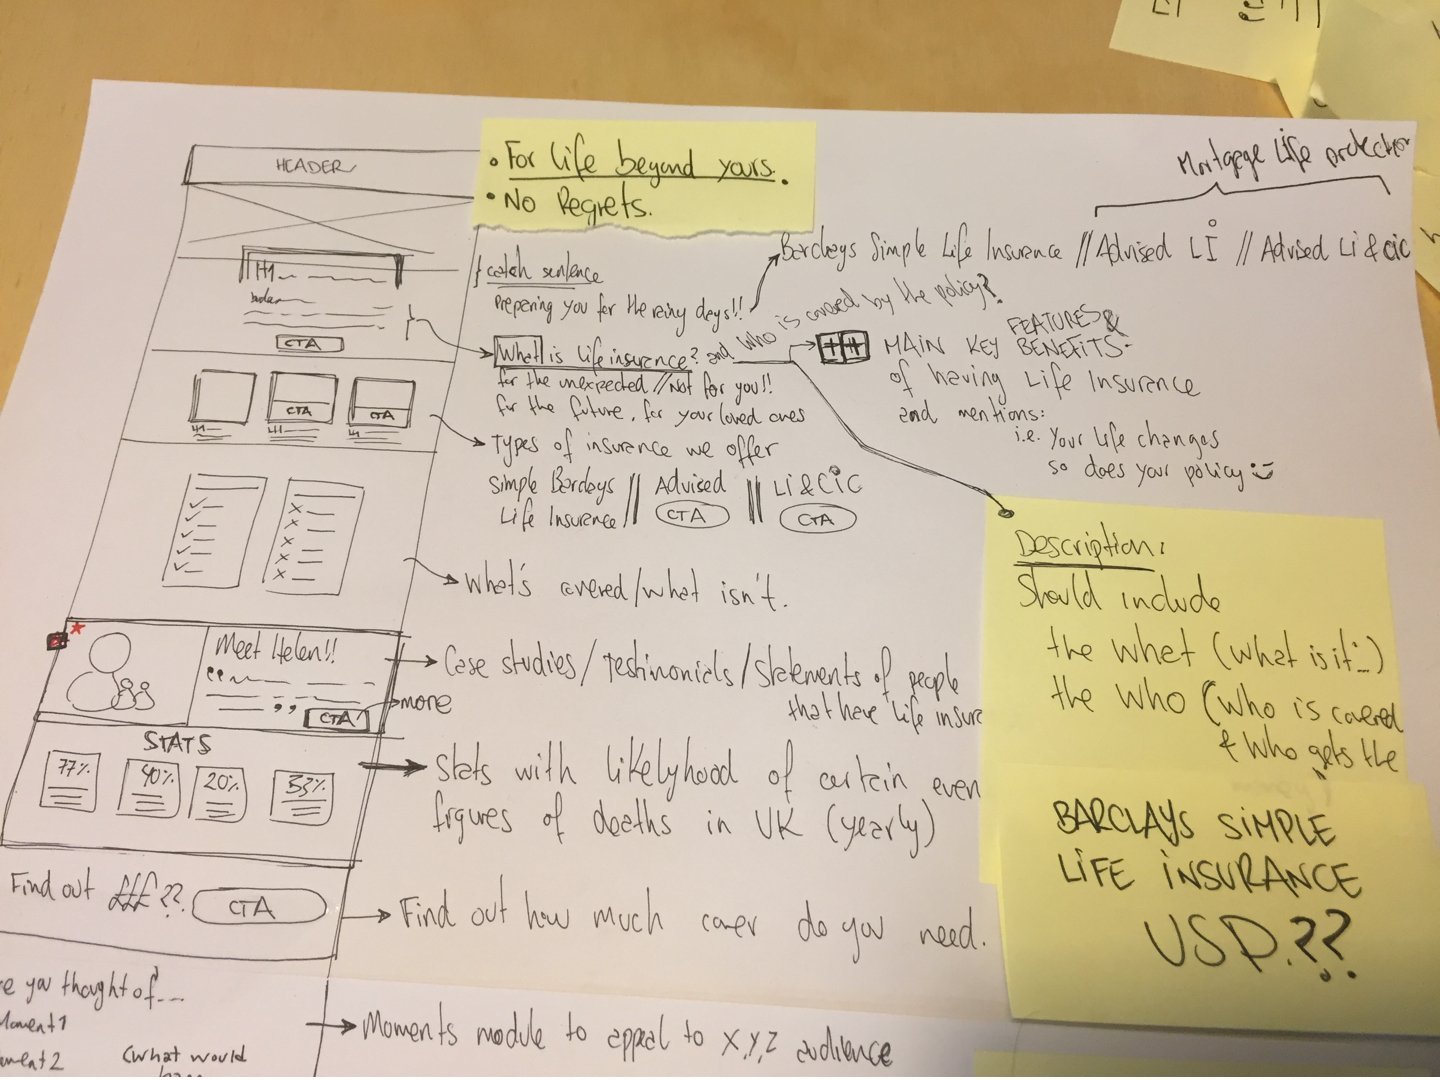 HEADER
• For life beyond yours.
• No Regrets.
Mortgage Life protection
Barclays Simple Life Insurance // Advised LI // Advised Li & cic
catch sentence
preparing you for the rainy days!!
H1
CTA
What is life insurance? and who is covered by the policy?
for the unexpected // Not for you!!
for the future, for your loved ones
MAIN KEY FEATURES &
BENEFITS
of having Life Insurance
and mentions:
i.e. Your life changes
so does your policy
CTA
CTA
Types of insurance we offer
Simple Barclays
Life Insurance // Advised || Li & cic
CTA
CTA
What's covered/what isn't.
Meet Helen!!
CTA
more
Case studies/Testimonials/Statements of people
that have life insur
STATS
77%
40%
20%
33%
Stats with likelyhood of certain even
figures of deaths in UK (yearly)
Find out £££??
CTA
Find out how much cover do you need.
re you thought of....
Moment 1
ment 2
(what would
Moments module to appeal to X,Y,Z audience
Description:
Should include
the what (what is it...)
the who (who is covered
& who gets the
BARCLAYS SIMPLE
LIFE INSURANCE
USP.??